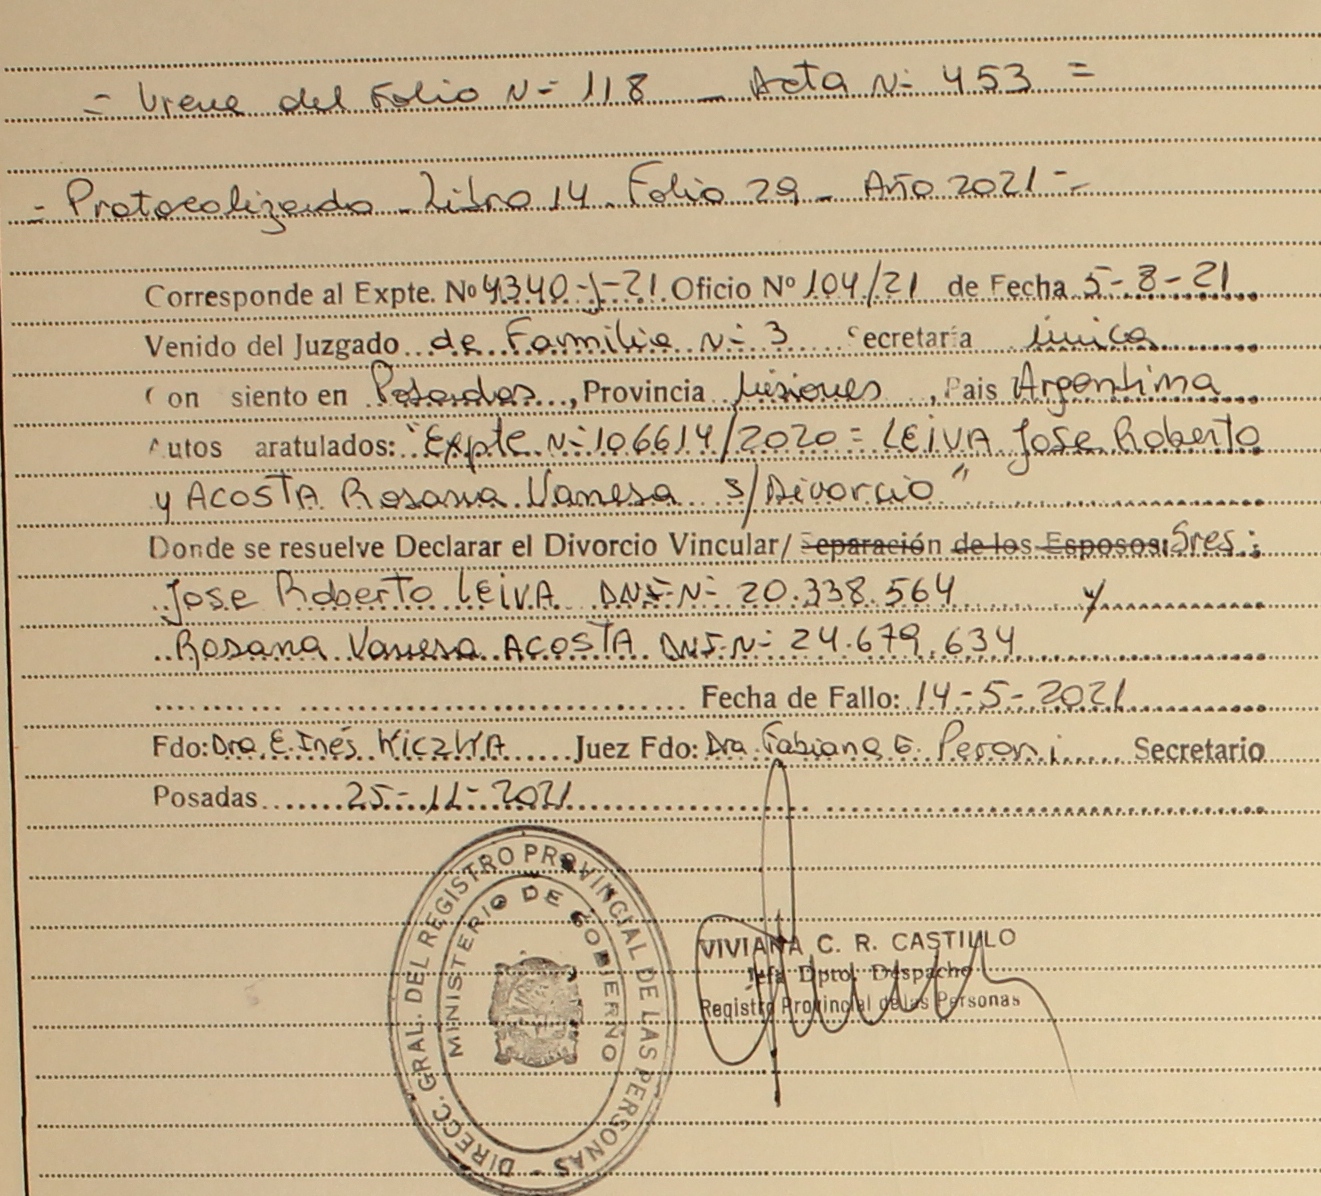 = Viene del Folio N= 118 _ Acta N= 453 =
- Protocolizado _ Libro 14 _ Folio 29 _ Año 2021 =
Corresponde al Expte. Nº 4340-J-21 Oficio Nº 104/21 de Fecha 5-8-21
Venido del Juzgado de Familia N= 3 ecretaría única
on siento en Posadas, Provincia Misiones, Pais Argentina
utos aratulados: "Expte N= 106614/2020 = LEIVA Jose Roberto
y ACOSTA Rosana Vanesa s/Divorcio"
Donde se resuelve Declarar el Divorcio Vincular/ Separación de los Esposos: Sres:
Jose Roberto LEIVA DNI N= 20.338.564 y
Rosana Vanesa ACOSTA DNI N= 24.679.634
Fecha de Fallo: 14-5-2021
Fdo: Dra. E. Inés KiczKA Juez Fdo: Dra. Fabiana G. Peroni Secretario
Posadas 25-11-2021
DIRECC. GRAL. DEL REGISTRO PROVINCIAL DE LAS PERSONAS -
MINISTERIO DE GOBIERNO
VIVIANA C. R. CASTILLO
Jefa Dpto. Despacho
Registro Provincial de las Personas